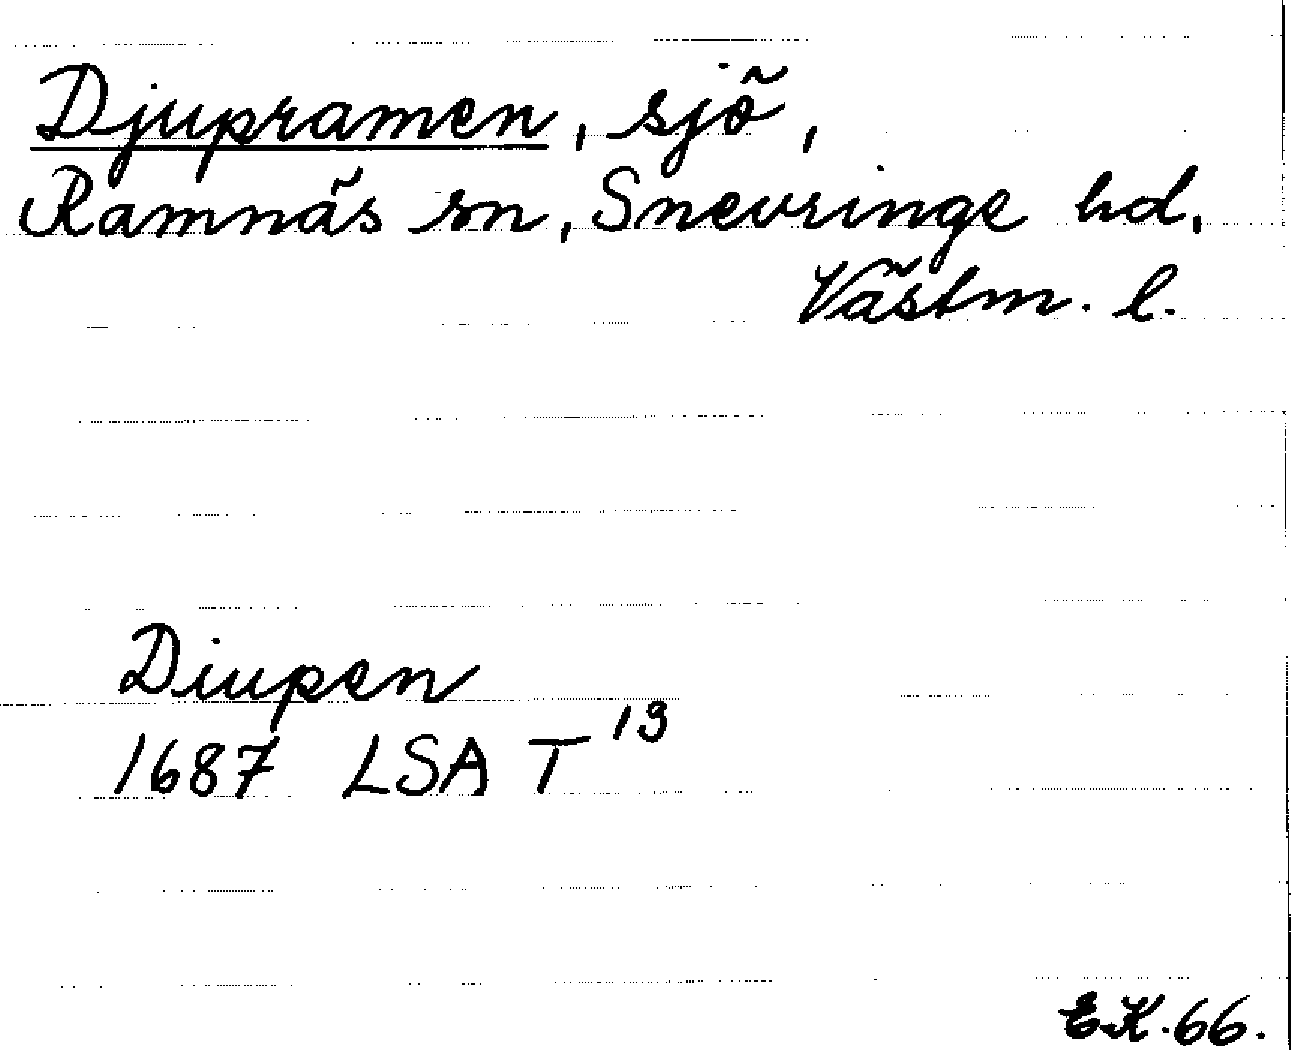 Djupramen, sjö,
Ramnäs sn, Snevringe hd,
Västm. l.
Diupen
1687 LSA T 13
E.K. 66.